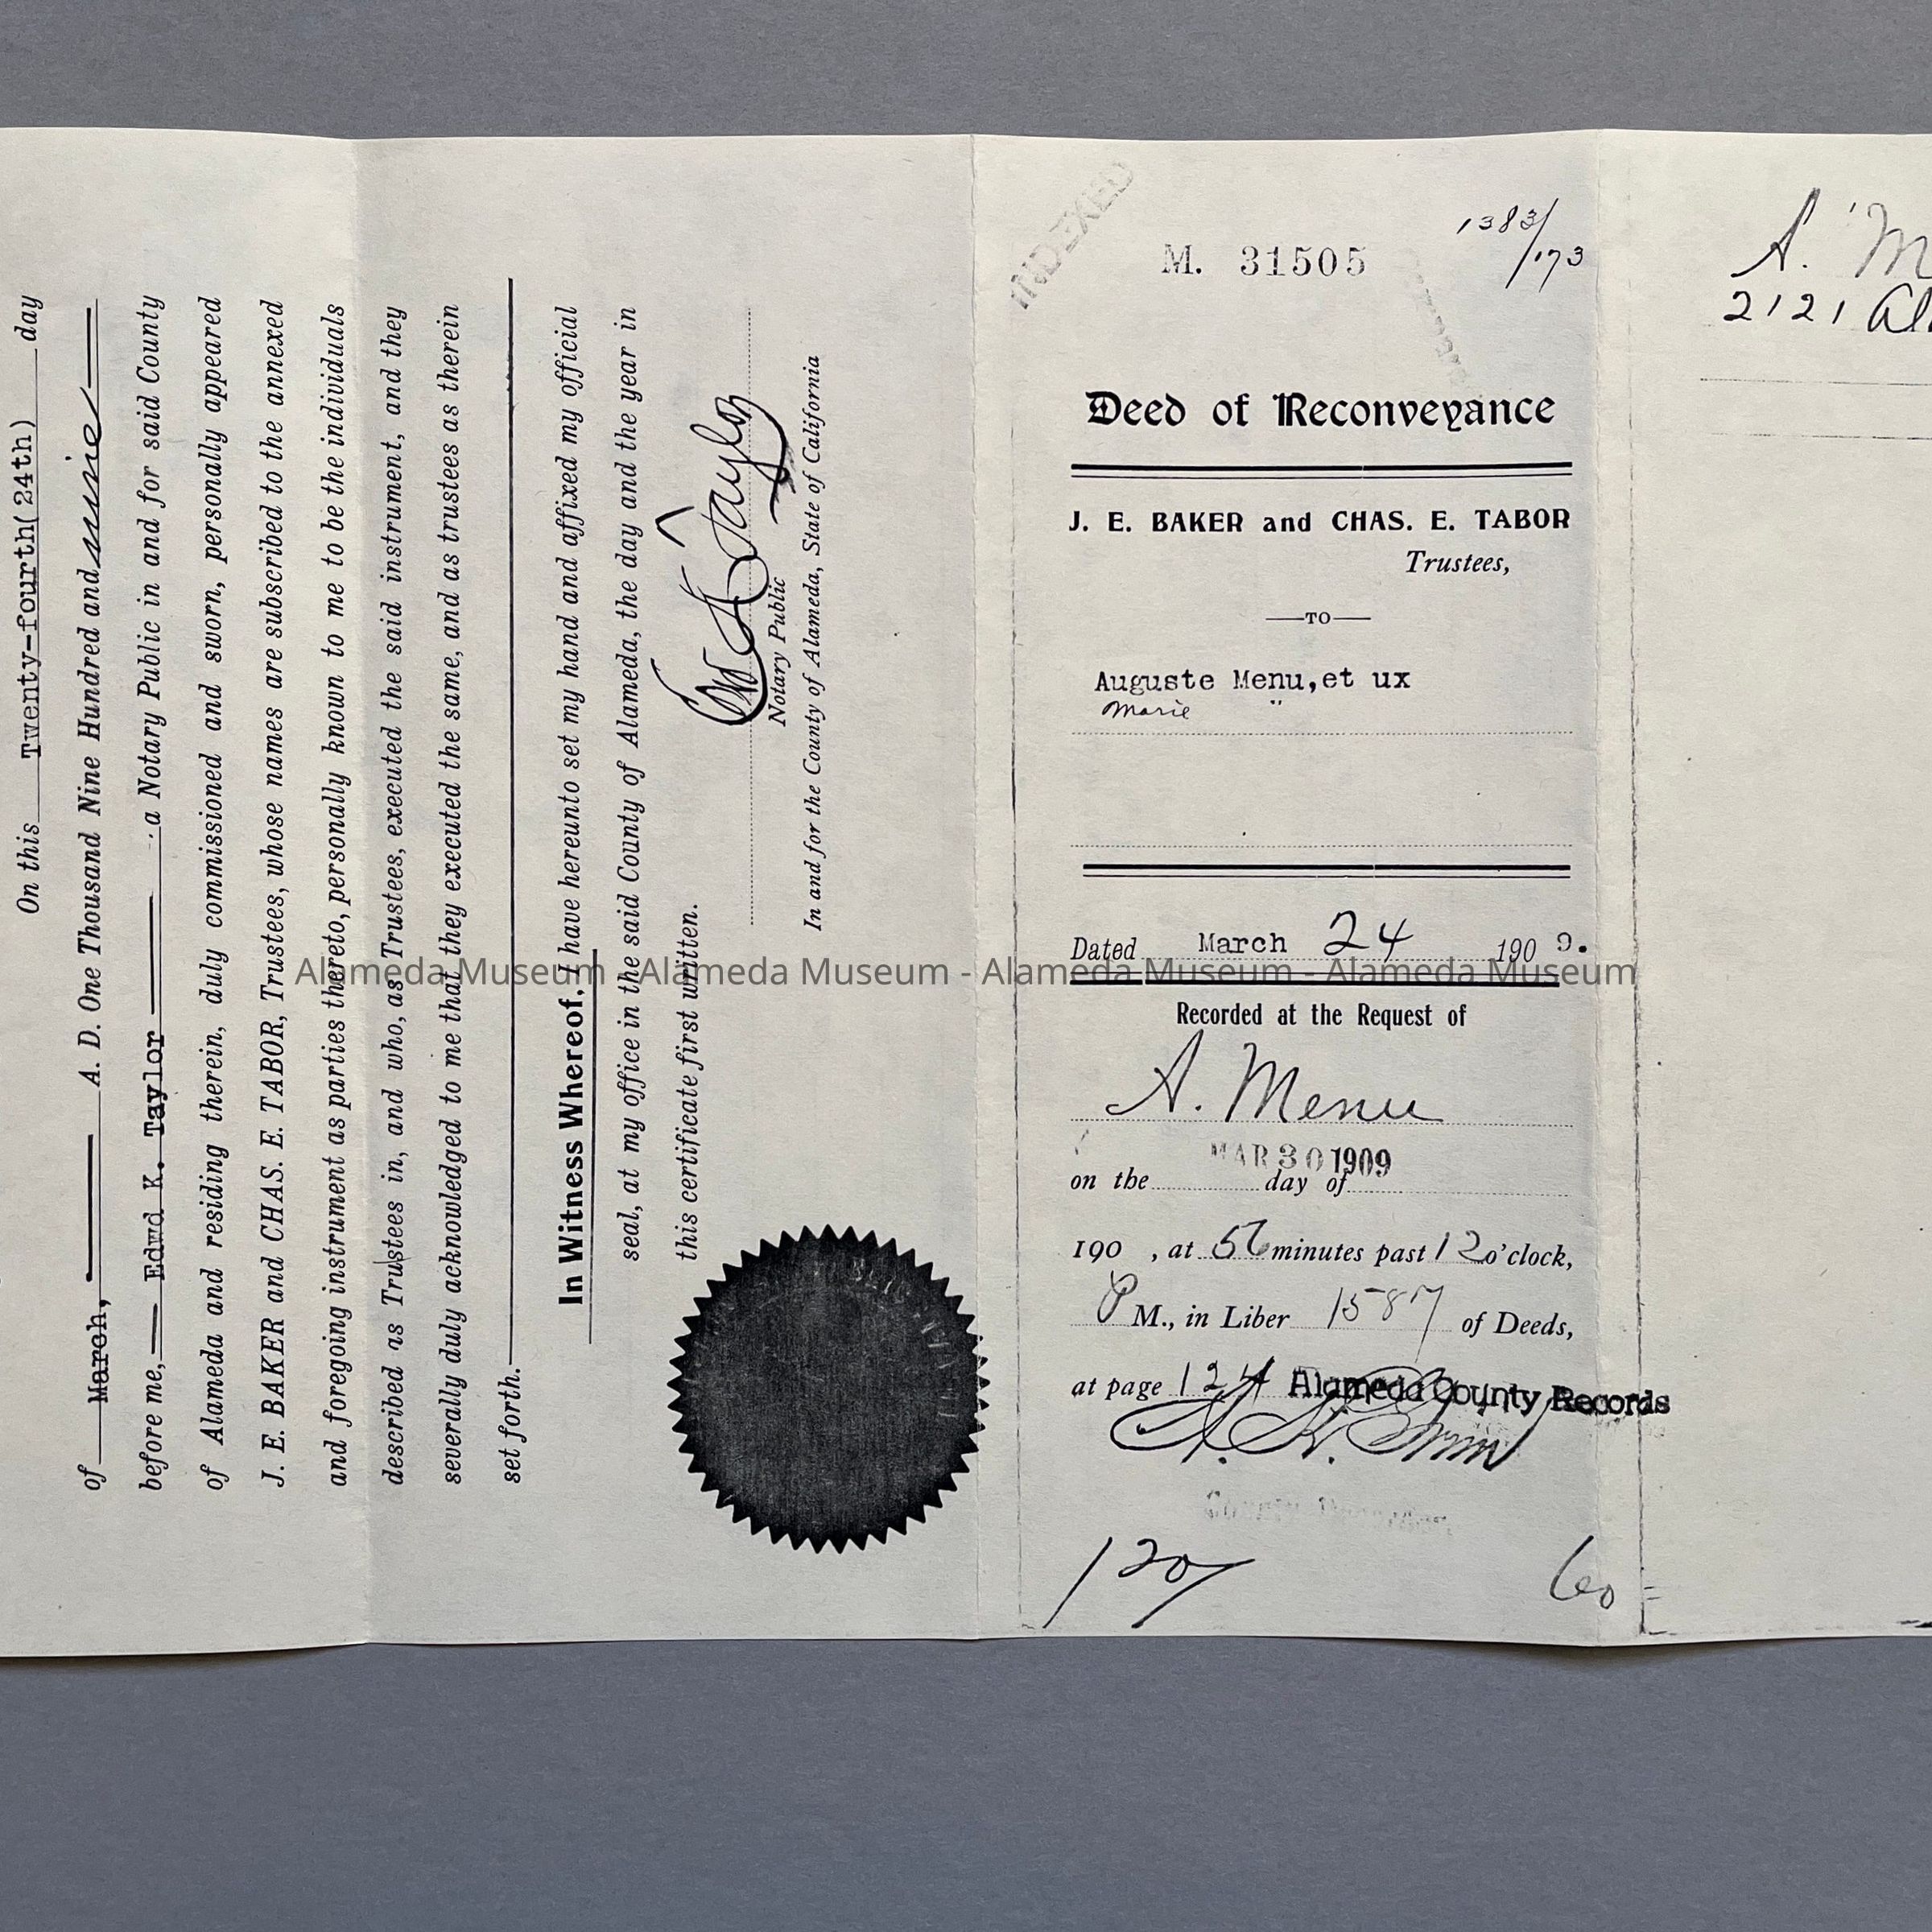 On this Twenty-fourth(24th) day
of March, A. D. One Thousand Nine Hundred and nine
before me, Edwd K. Taylor a Notary Public in and for said County
of Alameda and residing therein, duly commissioned and sworn, personally appeared
J. E. BAKER and CHAS. E. TABOR, Trustees, whose names are subscribed to the annexed
and foregoing instrument as parties thereto, personally known to me to be the individuals
described as Trustees in, and who, as Trustees, executed the said instrument, and they
severally duly acknowledged to me that they executed the same, and as trustees as therein
set forth.
In Witness Whereof, I have hereunto set my hand and affixed my official
seal, at my office in the said County of Alameda, the day and the year in
this certificate first written.
Taylor
Notary Public
In and for the County of Alameda, State of California
INDEXED
M. 31505
1383/173
Deed of Reconveyance
J. E. BAKER and CHAS. E. TABOR
Trustees,
—TO—
Auguste Menu,et ux
Marie "
Dated March 24 1909.
Recorded at the Request of
A. Menu
MAR 30 1909
on the day of
190 , at 56 minutes past 12 o'clock,
P M., in Liber 1587 of Deeds,
at page 124 Alameda County Records
County Recorder
120
60
A. M
2121 Al
Alameda Museum - Alameda Museum - Alameda Museum - Alameda Museum